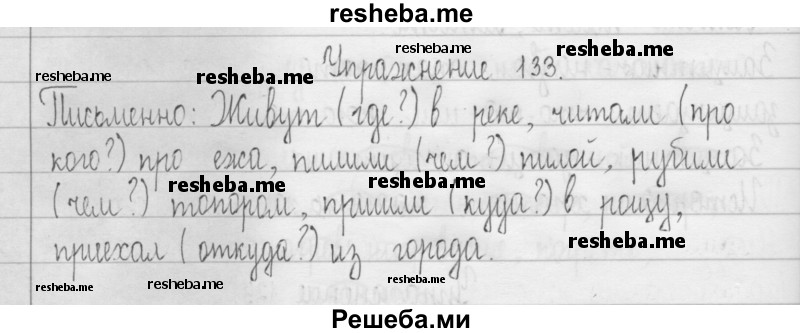 resheba.me
Упражнение 133.
resheba.me resheba.me resheba.me
Письменно: Живут (где?) в реке, читали (про
кого?) про ежа, пилили (чем?) пилой, рубили
resheba.me resheba.me
(чем?) топором, пришли (куда?) в рощу,
приехал (откуда?) из города.
resheba.me
resheba.me resheba.me resheba.me
Решеба.ми